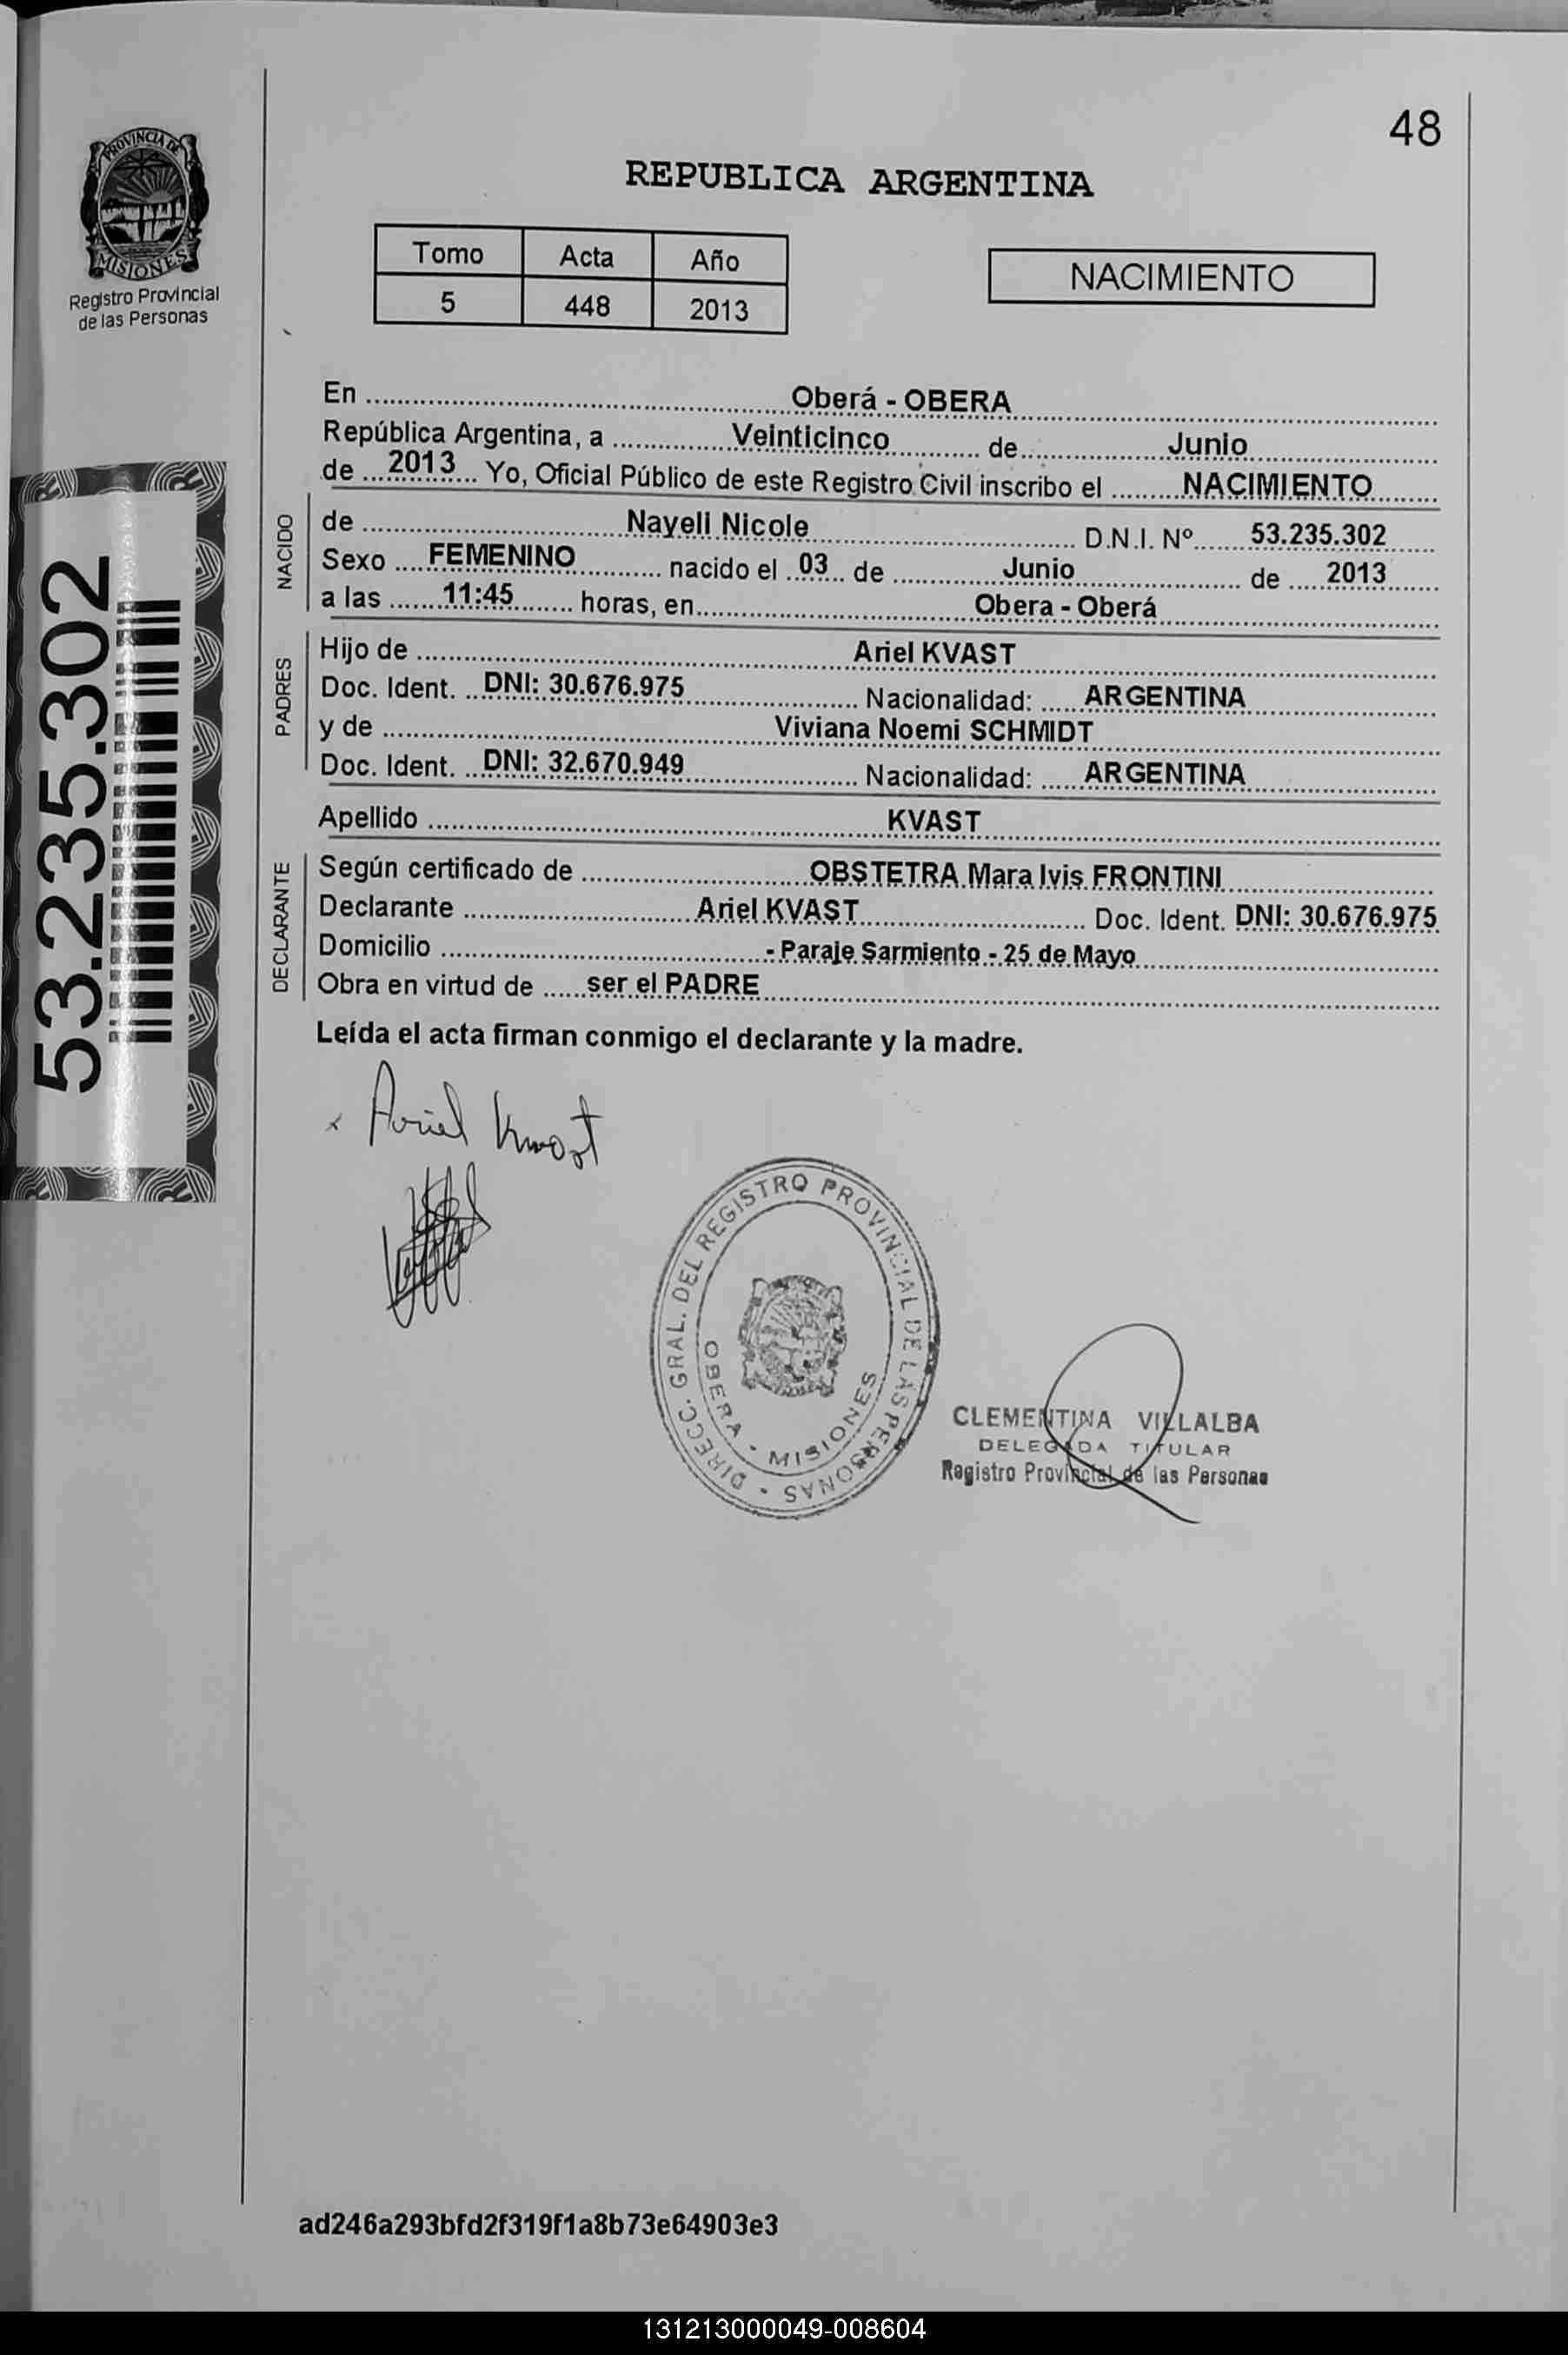 48
PROVINCIA DE
MISIONES
Registro Provincial
de las Personas
REPUBLICA ARGENTINA
Tomo Acta Año
5 448 2013
NACIMIENTO
En Oberá - OBERA
República Argentina, a Veinticinco de Junio
de 2013 Yo, Oficial Público de este Registro Civil inscribo el NACIMIENTO
NACIDO
de Nayeli Nicole D.N.I. Nº 53.235.302
Sexo FEMENINO nacido el 03 de Junio de 2013
a las 11:45 horas, en Obera - Oberá
PADRES
Hijo de Ariel KVAST
Doc. Ident. DNI: 30.676.975 Nacionalidad: ARGENTINA
y de Viviana Noemi SCHMIDT
Doc. Ident. DNI: 32.670.949 Nacionalidad: ARGENTINA
Apellido KVAST
DECLARANTE
Según certificado de OBSTETRA Mara Ivis FRONTINI
Declarante Ariel KVAST Doc. Ident. DNI: 30.676.975
Domicilio - Paraje Sarmiento - 25 de Mayo
Obra en virtud de ser el PADRE
Leída el acta firman conmigo el declarante y la madre.
53.235.302
Ariel Kvast
DIRECC. GRAL. DEL REGISTRO PROVINCIAL DE LAS PERSONAS
OBERA - MISIONES
CLEMENTINA VILLALBA
DELEGADA TITULAR
Registro Provincial de las Personas
ad246a293bfd2f319f1a8b73e64903e3
131213000049-008604